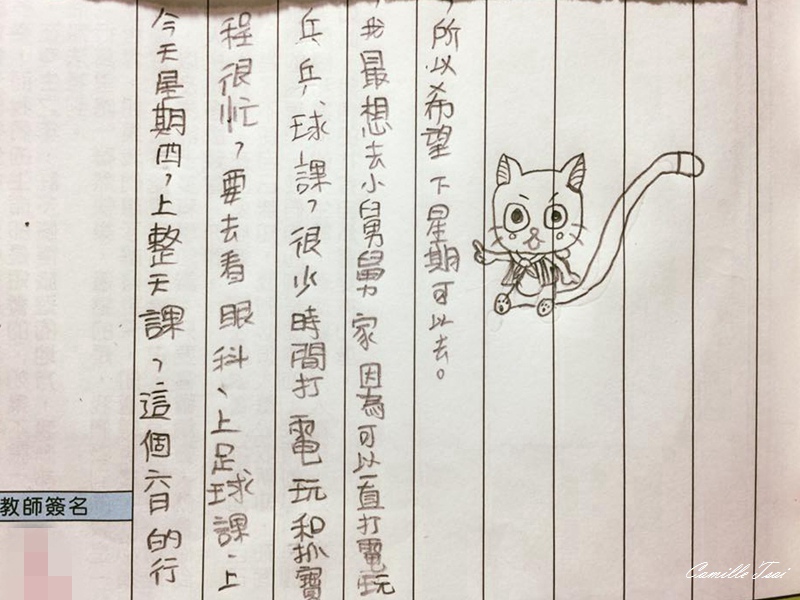 今天星期四，上整天課，這個六日的行
程很忙，要去看眼科、上足球課、上
兵乒球課，很少時間打電玩和抓寶
，我最想去小舅舅家因為可以一直打電玩
，所以希望下星期可以去。
教師簽名
Camille Tsai